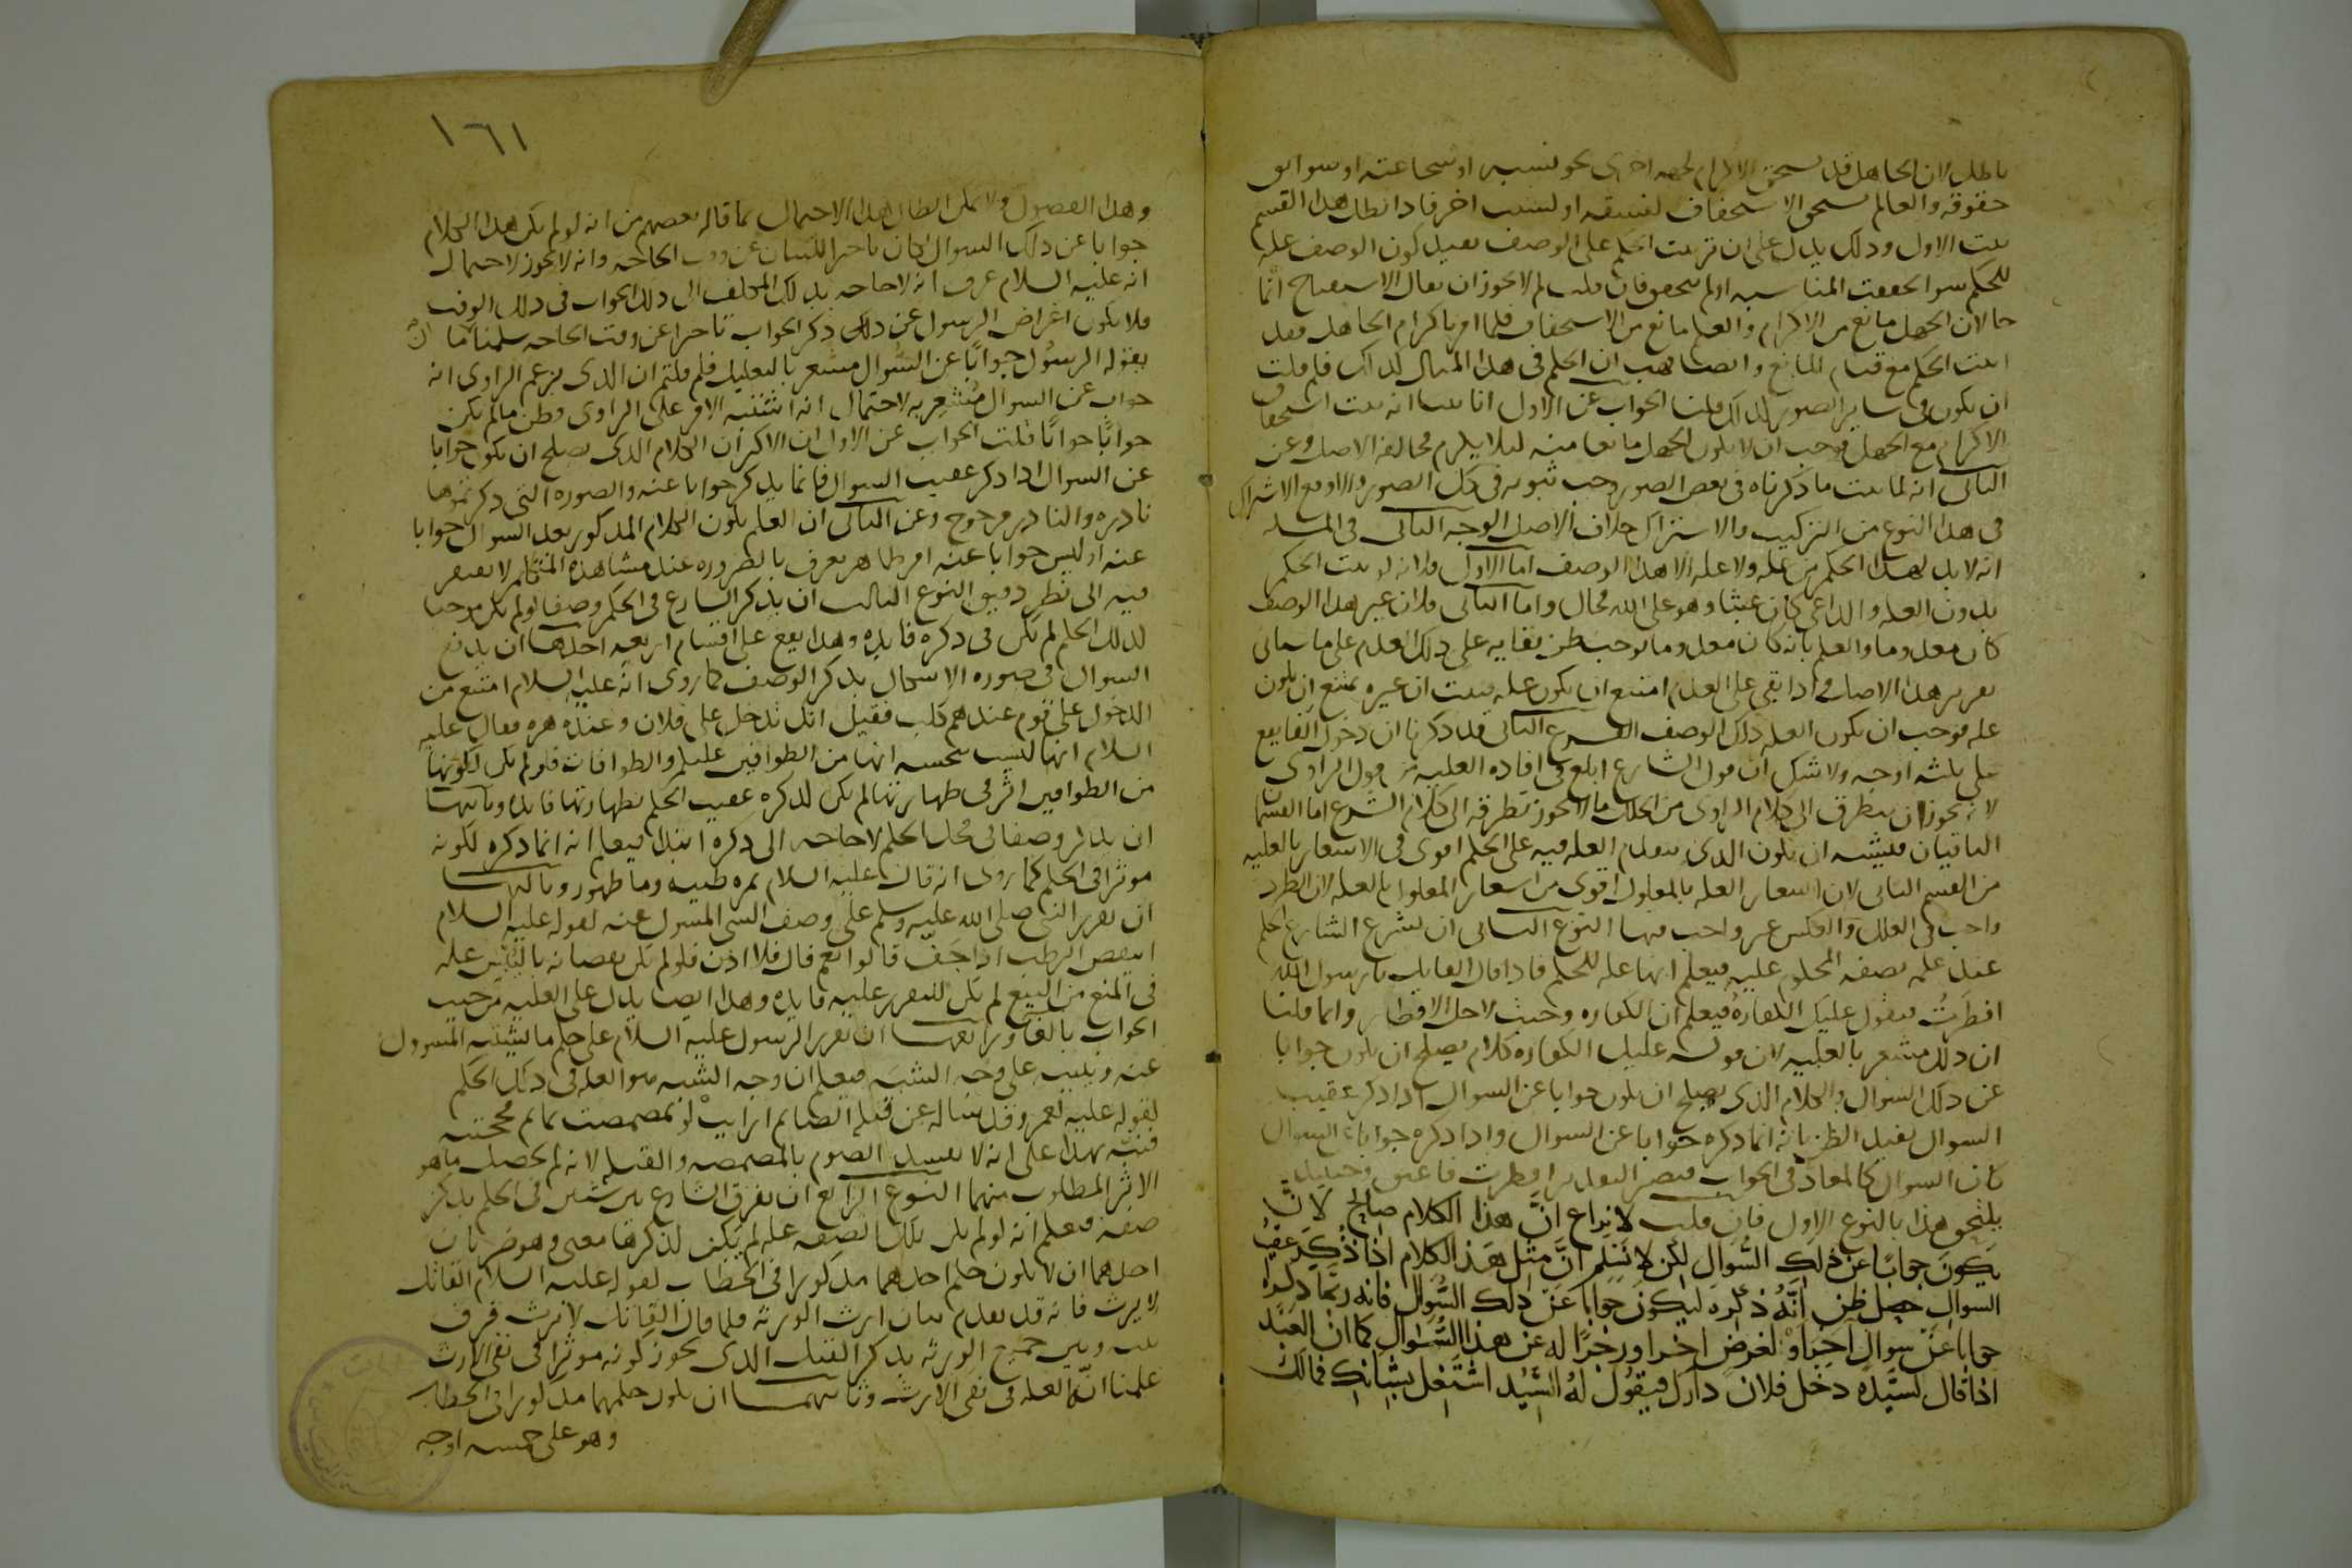 باطل لان الجاهل قد يستحق الاكرام لجهه اخرى نحو نسبه او شجاعته او سوابق
حقوقه والعالم يستحق الاستخفاف لفسقه او لسبب اخر فاذا بطل هذا القسم
ثبت الاول وذلك يدل على ان ترتيب الحكم على الوصف يفيد كون الوصف عله
للحكم سوا تحققت المناسبه او لم تتحقق فان قلت لم لا يجوز ان يقال الاستقباح انما
جا لان الجهل مانع من الاكرام والعلم مانع من الاستخفاف فلما امر باكرام الجاهل فقد
اثبت الحكم مع قيام المانع وايضا هب ان الحكم في هذا المثال لذلك فلم قلت
ان يكون في ساير الصور كذلك قلنا الجواب عن الاول انا بينا انه يثبت استحقاق
الاكرام مع الجهل فوجب ان لا يكون الجهل مانعا منه ليلا يلزم مخالفه الاصل وعن
الثاني انه لما ثبت ما ذكرناه في بعض الصور وجب ثبوته في كل الصور والا وقع الاشتراك
في هذا النوع من التركيب والاشتراك خلاف الاصل الوجه الثاني في المسله
انه لا بد لهذا الحكم من عله ولا عله الا هذا الوصف اما الاول فلانه لو ثبت الحكم
بدون العله والداعي كان عبثا وهو على الله محال واما الثاني فلان غير هذا الوصف
كان معدوما والعلم بانه كان معدوما يوجب ظن بقايه على ذلك العدم على ما سياتي
تقرير هذا الاصل واذا بقي على العدم امتنع ان يكون عله فثبت ان غيره يمتنع ان يكون
عله فوجب ان يكون العله ذلك الوصف الفرع الثاني قد ذكرنا ان دخول الفا يقع
على ثلثه اوجه ولا شك ان قول الشارع ابلغ في افاده العليه من قول الراوي
لانه يجوز ان يتطرق الى كلام الراوي من الخلل ما لا يجوز تطرقه الى كلام الشرع اما القسمان
الباقيان فيشبه ان يكون الذي يتقدم العله فيه على الحكم اقوى في الاشعار بالعليه
من القسم الثاني لان اشعار العله بالمعلول اقوى من اشعار المعلول بالعله لان الطرد
واجب في العلل والعكس غير واجب فيها النوع الثاني ان يشرع الشارع الحكم
عند علمه بصفه المحكوم عليه فيعلم انها عله للحكم فاذا قال القايل يا رسول الله
افطرتُ فيقول عليك الكفارهُ فيعلم ان الكفاره وجبت لاجل الافطار وانما قلنا
ان ذلك مشعر بالعليه لان قوله عليك الكفاره كلام يصلح ان يكون جوابا
عن ذلك السوال والكلام الذي يصلح ان يكون جوابا عن السوال اذا ذكر عقيب
السوال يفيد الظن بانه انما ذكره جوابا عن السوال واذا ذكره جوابا عن السوال
كان السوال كالمعاد في الجواب فيصير التقدير افطرت فاعتق وحينيذ
يلتحق هذا بالنوع الاول فان قلت لا نزاع انَّ هذا الكلام صالح لانّ
يكونَ جوابًا عن ذلك السُّوال لكن لا نسَلّم انَّ مثل هذا الكلام اذا ذُكِرَ عقيب
السوال حصل ظن انَّهُ ذكرهُ ليكونَ جوابًا عن ذلك السُّوال فانه ربَّما ذكره
جوابا عن سوال اخر اوْ لغرضٍ اخر او زجرًا له عن هذا السُّوال كما ان العَبْد
اذا قال لسيّده دخل فلان دارك فيقول لهُ السَّيّد اشتغل بشانك فمالك
١٦١
وهذا الفضول ولا يمكن ابطال هذا الاحتمال بما قاله بعضهم من انه لو لم يكن هذا الكلام
جوابا عن ذلك السوال لكان تاخيرا للبيان عن وقت الحاجه وانه لا يجوز لاحتمال
انه عليه السلام عرف انه لا حاجه بذلك المكلف الى ذلك الجواب في ذلك الوقت
فلا يكون اعراض الرسول عن ذلك ذكر الجواب تاخيرا عن وقت الحاجه سلمنا ما انّ
يقوله الرسُول جوابًا عن السُّوال مشعر بالتعليل فلم قلتم ان الذي يزعم الراوي انه
جواب عن السوال مُشعِر به لاحتمال انه اشتبه الامر على الراوي وظن ما لم يكن
جوابًا جوابًا قلت الجواب عن الاول ان الاكثر ان الكلام الذي يصلح ان يكون جوابا
عن السوال اذا ذكر عقيب السوال فانما يذكر جوابا عنه والصوره التي ذكرتموها
نادره والنادر مرجوح وعن الثاني ان العلم بكون الكلام المذكور بعد السوال جوابا
عنه او ليس جوابا عنه امر ظاهر يعرف بالضروره عند مشاهده المتكلم لا يفتقر
فيه الى نظر دقيق النوع الثالث ان يذكر الشارع في الحكم وصفا لو لم يكن موجبا
لذلك الحكم لم يكن في ذكره فايده وهذا يقع على اقسام اربعه احدها ان يدفع
السوال في صوره الاشكال بذكر الوصف كما روي انه عليه السلام امتنع من
الدخول على قوم عندهم كلب فقيل انك تدخل على فلان وعنده هره فقال عليه
السلام انها ليست بنجسه انها من الطوافين عليكم والطوافات فلو لم يكن لكونها
من الطوافين اثر في طهارتها لم يكن لذكره عقيب الحكم بطهارتها فايده وثانيها
ان يذكر وصفا في محل الحكم لا حاجه الى ذكره ابتدا فيعلم انه انما ذكره لكونه
موثرا في الحكم كما روي انه قال عليه السلام تمره طيبه وما طهور وثالثها
ان يقرر النبي صلى الله عليه وسلم على وصف الشي المسول عنه لقوله عليه السلام
اينقص الرطب اذا جَفّ قالوا نعم قال فلا اذن فلو لم يكن نقصانه باليبس عله
في المنع من البيع لم يكن للتقرير عليه فايده وهذا ايضا يدل على العليه من حيث
الجواب بالفا ورابعها ان يقرر الرسول عليه السلام على حكم ما يشبه المسوول
عنه وينبه على وجه الشبه فيعلم ان وجه الشبه هو العله في ذلك الحكم
لقوله عليه لعمر وقد ساله عن قبله الصايم ارايت لو تمضمضت بما ثم مججته
فنبّه بهذا على انه لا يفسد الصوم بالمضمضه والقبله لانه لم يحصل ما هو
الاثر المطلوب منهما النوع الرابع ان يفرق الشارع بين شيين في الحكم بذكر
صفه فيعلم انه لو لم يكن تلك الصفه عله لم يكن لذكرها معنى وهو ضربان
احدهما ان لا يكون حكم احدهما مذكورا في الخطاب لقوله عليه السلام القاتل
لا يرث فانه قد تقدم بيان ارث الورثه فلما قال القاتل لا يرث فرق
بينه وبين جميع الورثه بذكر القتل الذي يجوز كونه موثرا في نفي الارث
علمنا انّه العله في نفي الارث وثانيهما ان يكون حكمهما مذكورا في الخطاب
وهو على خمسه اوجه